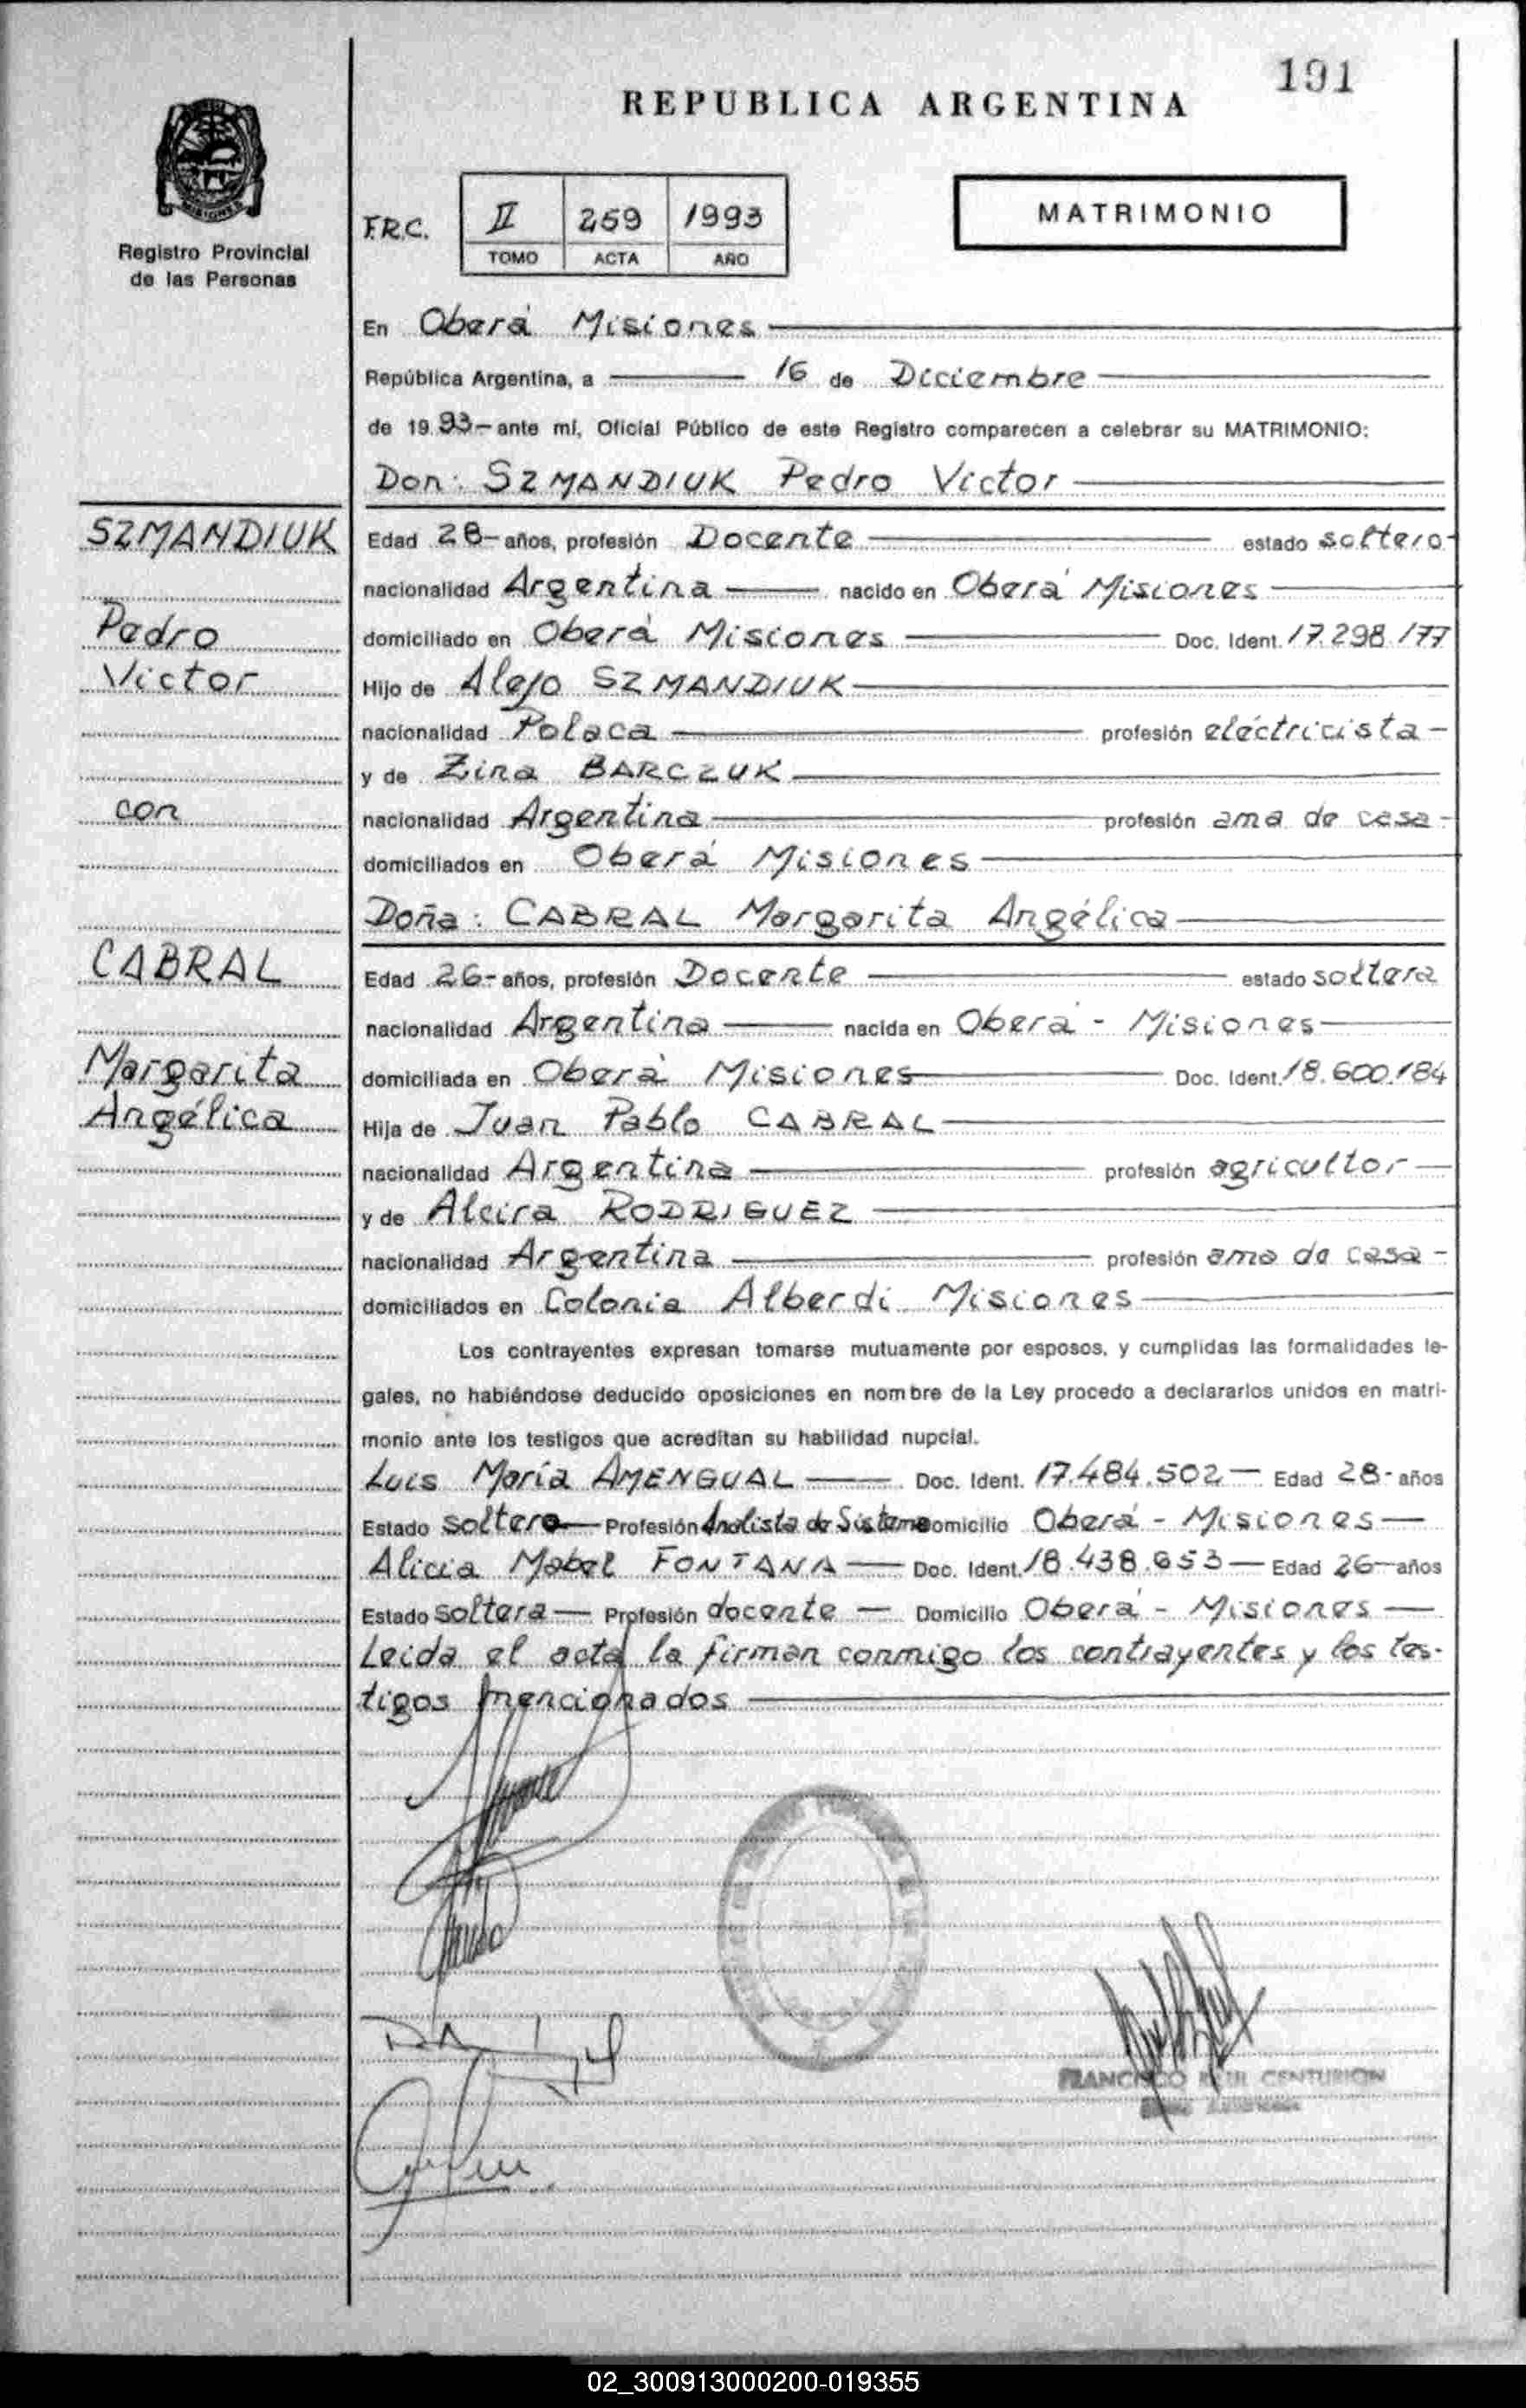 191
REPUBLICA ARGENTINA
MISIONES
Registro Provincial
de las Personas
F.R.C.
II 259 1993
TOMO ACTA AÑO
MATRIMONIO
En Oberá Misiones
República Argentina, a 16 de Diciembre
de 1993 - ante mí, Oficial Público de este Registro comparecen a celebrar su MATRIMONIO:
Don: SZMANDIUK Pedro Victor
SZMANDIUK
Edad 28 - años, profesión Docente estado soltero -
nacionalidad Argentina nacido en Oberá Misiones
Pedro
domiciliado en Oberá Misiones Doc. Ident. 17.298.177
Victor
Hijo de Alejo SZMANDIUK
nacionalidad Polaca profesión electricista -
y de Zina BARCZUK
con
nacionalidad Argentina profesión ama de casa -
domiciliados en Oberá Misiones
Doña: CABRAL Margarita Angélica
CABRAL
Edad 26 - años, profesión Docente estado soltera
nacionalidad Argentina nacida en Oberá - Misiones
Margarita
domiciliada en Oberá Misiones Doc. Ident. 18.600.184
Angélica
Hija de Juan Pablo CABRAL
nacionalidad Argentina profesión agricultor
y de Alcira RODRIGUEZ
nacionalidad Argentina profesión ama de casa -
domiciliados en Colonia Alberdi Misiones
Los contrayentes expresan tomarse mutuamente por esposos, y cumplidas las formalidades le-
gales, no habiéndose deducido oposiciones en nombre de la Ley procedo a declararlos unidos en matri-
monio ante los testigos que acreditan su habilidad nupcial.
Luis María AMENGUAL Doc. Ident. 17.484.502 - Edad 28 - años
Estado soltero Profesión Analista de Sistema Domicilio Oberá - Misiones
Alicia Mabel FONTANA Doc. Ident. 18.438.653 - Edad 26 - años
Estado soltera Profesión docente Domicilio Oberá - Misiones
Leida el acta la firman conmigo los contrayentes y los tes-
tigos mencionados
FRANCISCO CENTURION
02_300913000200-019355